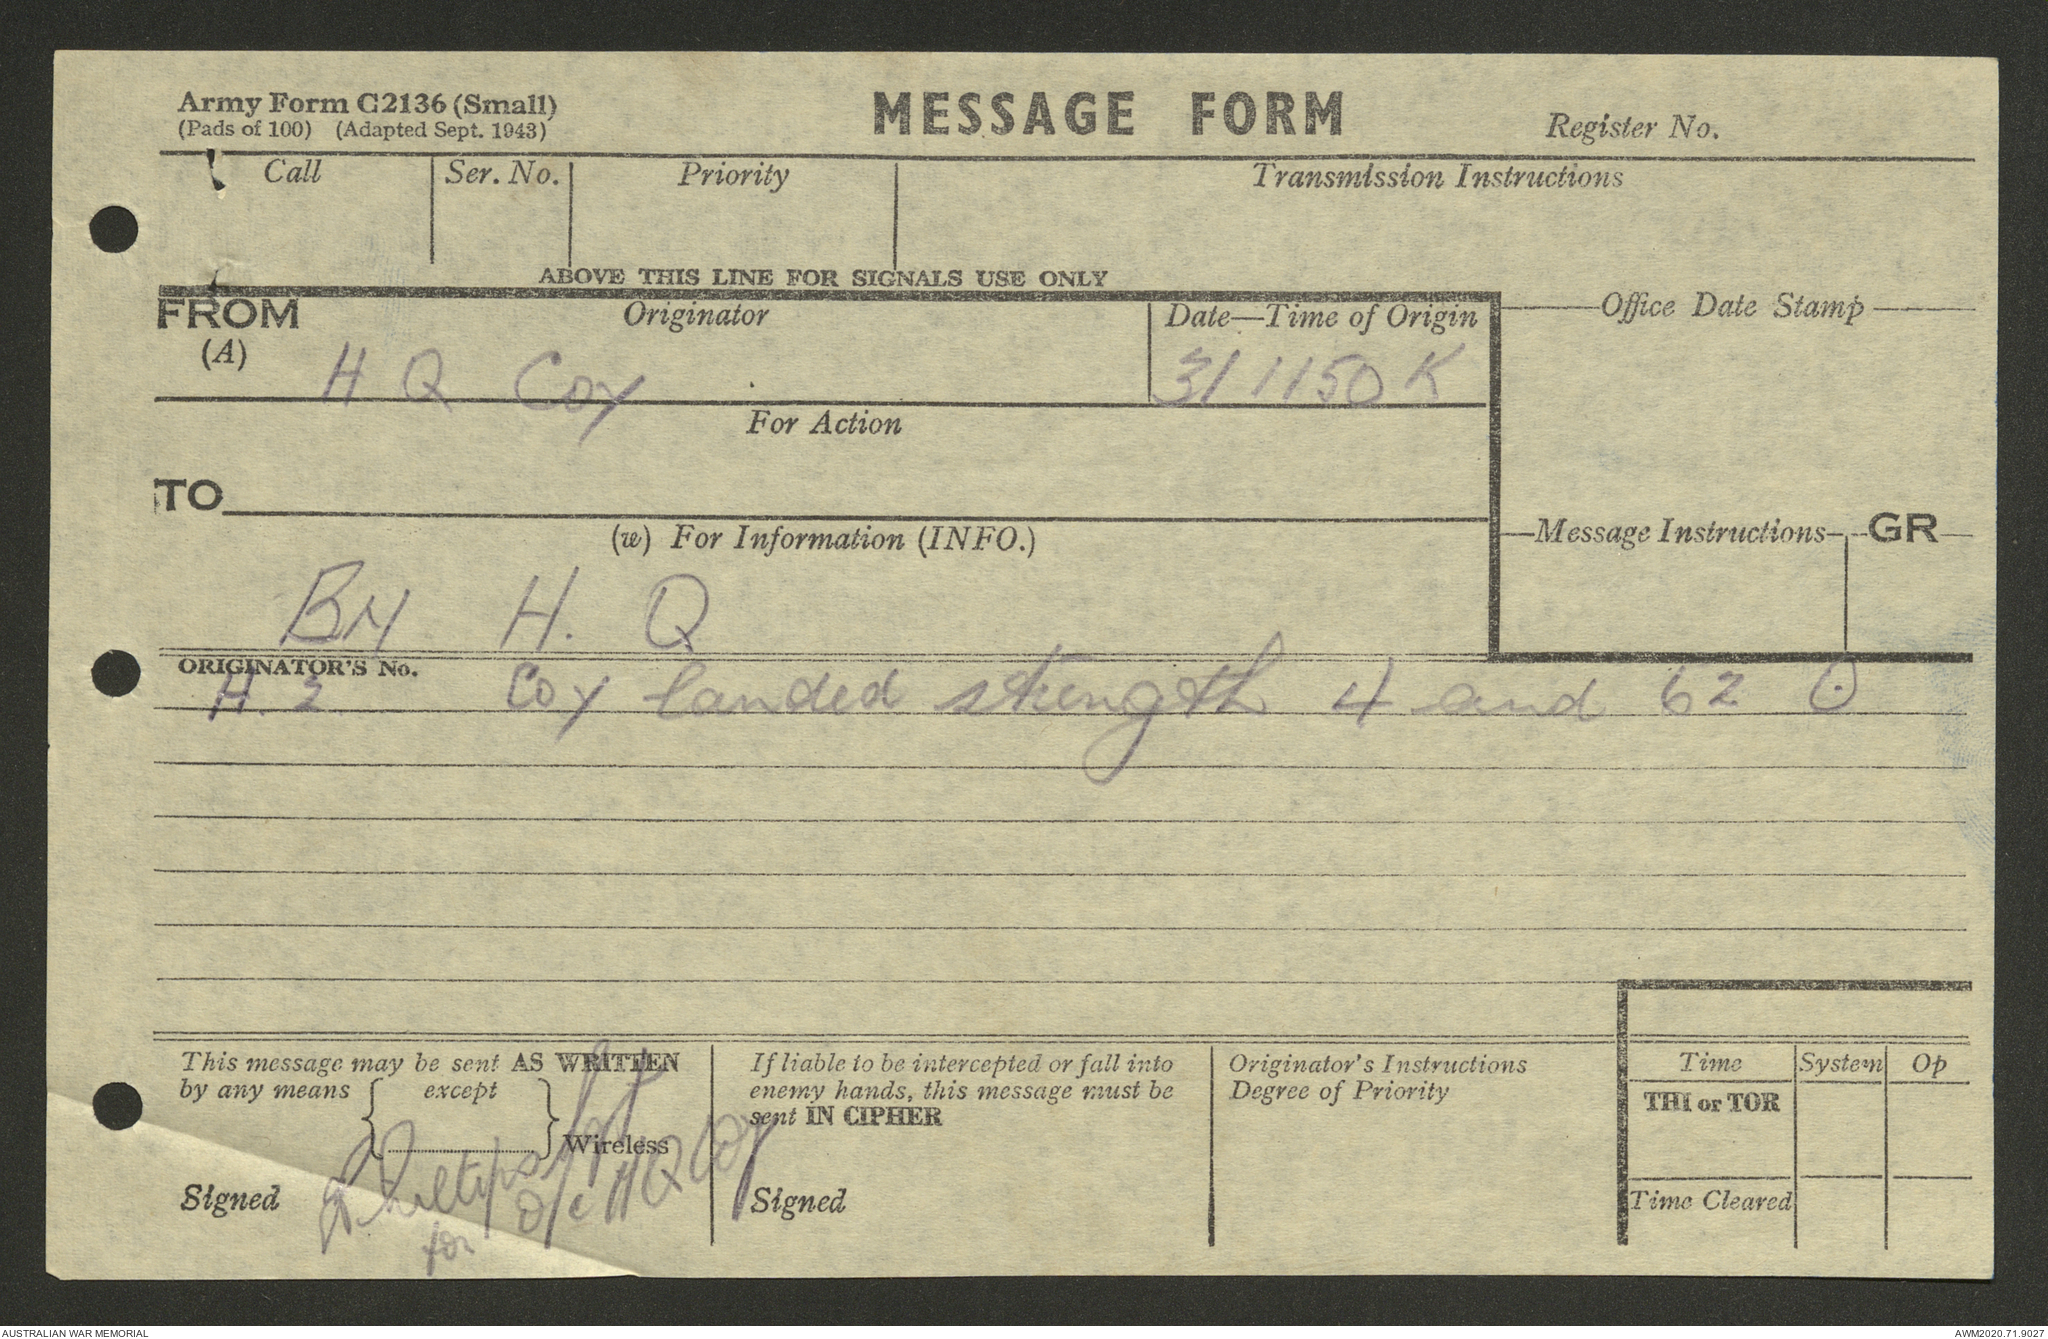 Army Form C2136 (Small)
(Pads of 100) (Adapted Sept. 1943)
MESSAGE FORM
Register No.
Call Ser. No. Priority Transmission Instructions
ABOVE THIS LINE FOR SIGNALS USE ONLY
FROM
(A)
Originator
H Q Coy
Date—Time of Origin
311150K
Office Date Stamp
For Action
TO
(w) For Information (INFO.)
Message Instructions GR
BN H. Q
ORIGINATOR'S No.
H. 2 Coy landed strength 4 and 62 O
This message may be sent AS WRITTEN
by any means except
Wireless
Signed
for O/C HQ Coy
If liable to be intercepted or fall into
enemy hands, this message must be
sent IN CIPHER
Signed
Originator's Instructions
Degree of Priority
Time System Op
THI or TOR
Time Cleared
AUSTRALIAN WAR MEMORIAL
AWM2020.71.9027